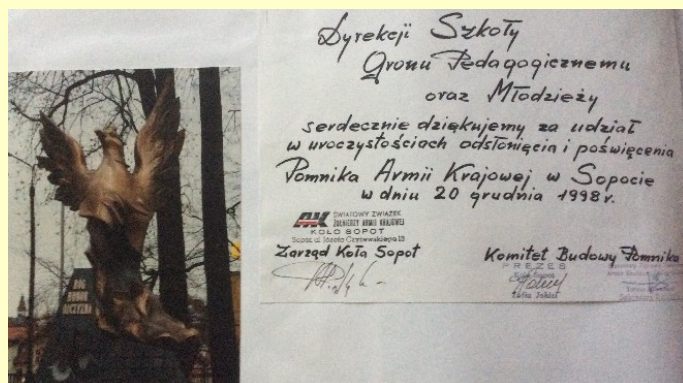 Dyrekcji Szkoły
Gronu Pedagogicznemu
oraz Młodzieży
serdecznie dziękujemy za udział
w uroczystościach odsłonięcia i poświęcenia
Pomnika Armii Krajowej w Sopocie
w dniu 20 grudnia 1998r.
AK ŚWIATOWY ZWIĄZEK
ŻOŁNIERZY ARMII KRAJOWEJ
KOŁO SOPOT
Sopot ul. Józefa
Zarząd Koła Sopot
Komitet Budowy Pomnika
PREZES
BÓG
HONOR
OJCZYZNA